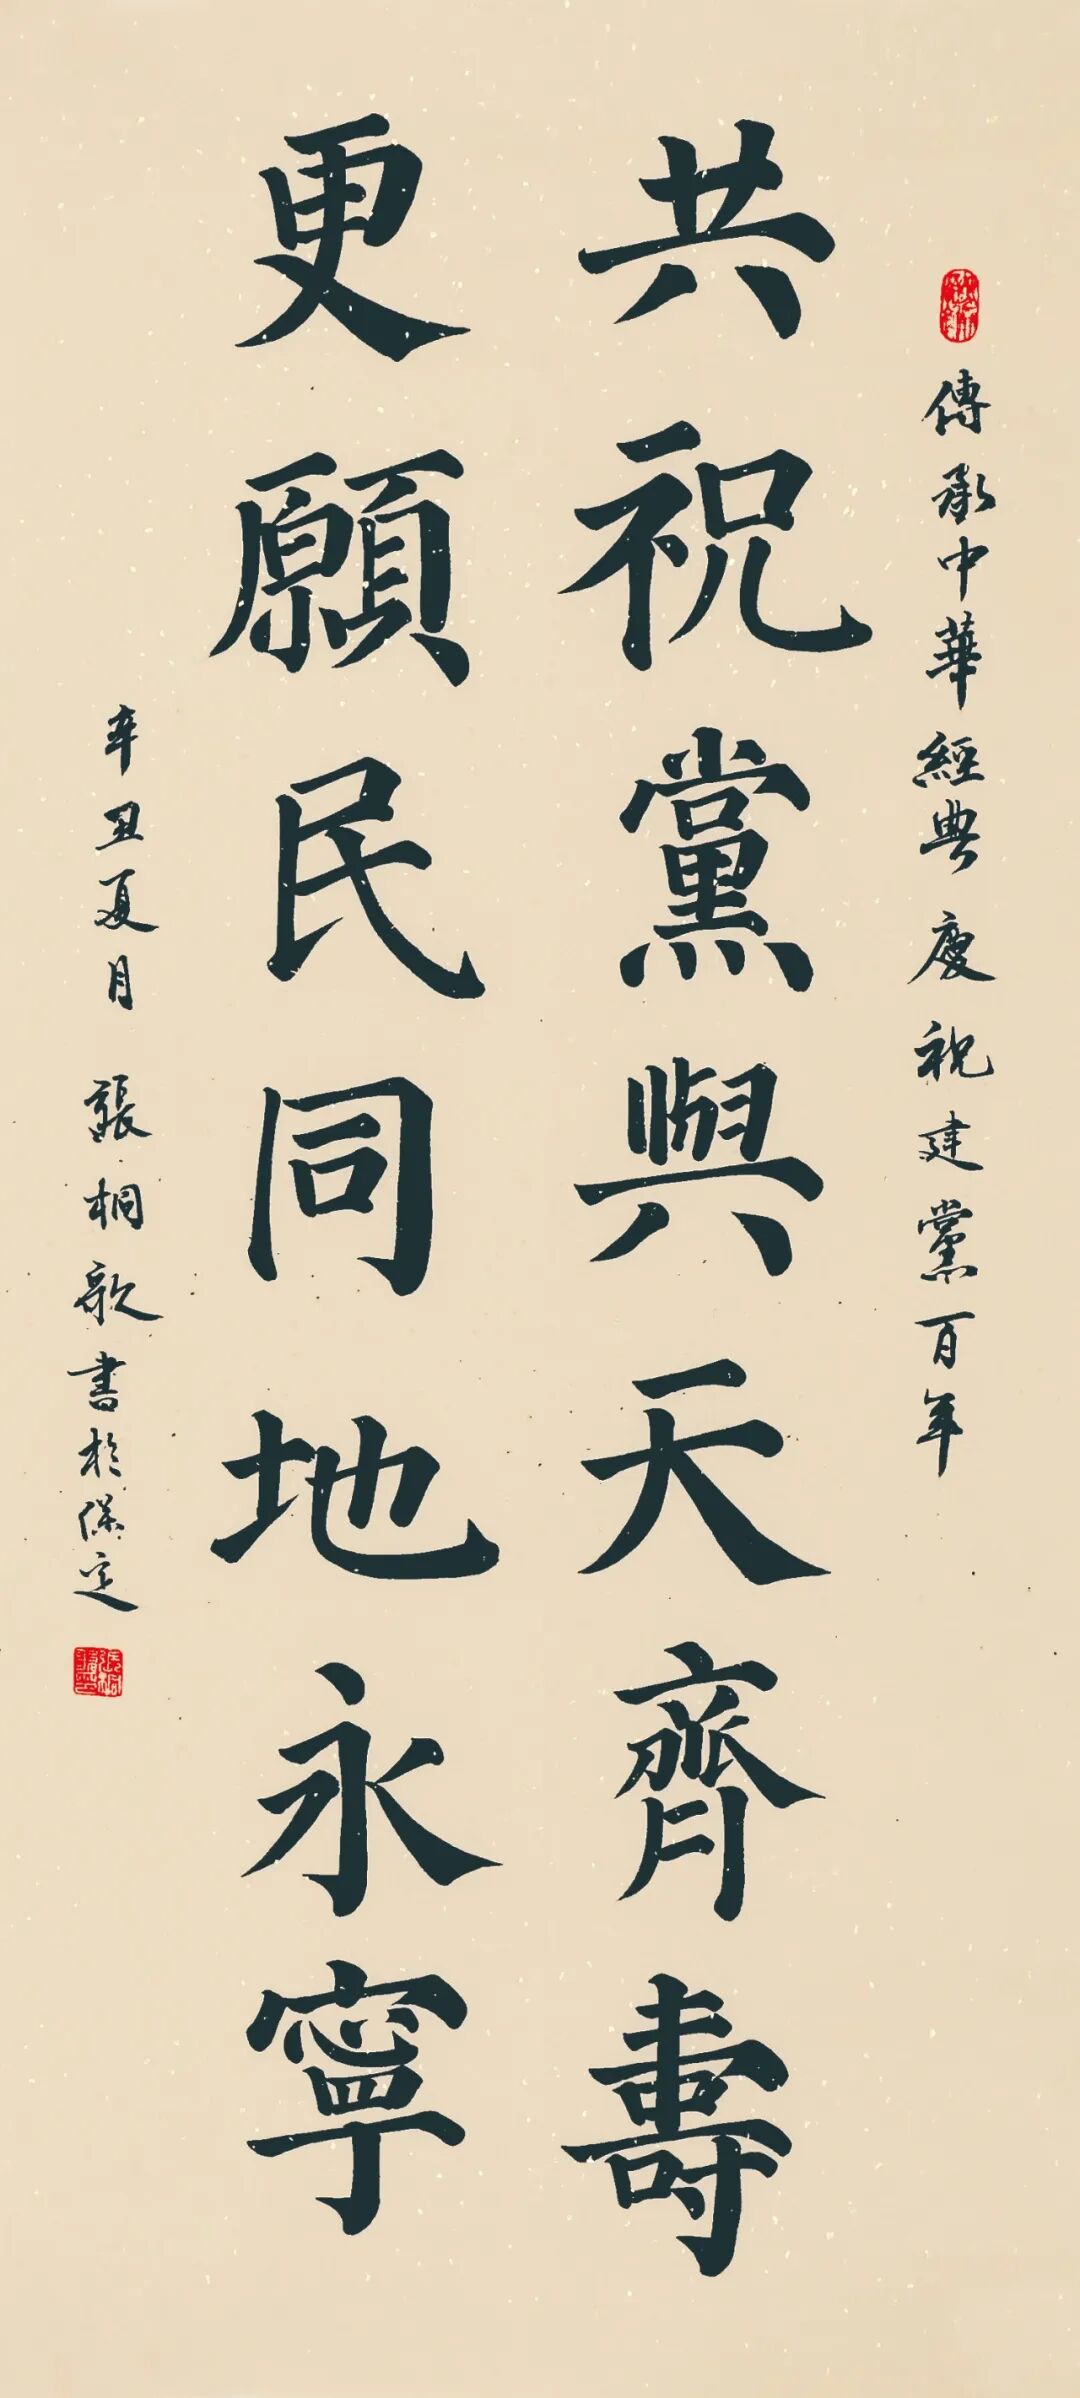 傳承中華經典慶祝建黨百年
共祝黨與天齊壽
更願民同地永寧
辛丑夏月張桐歌書於保定